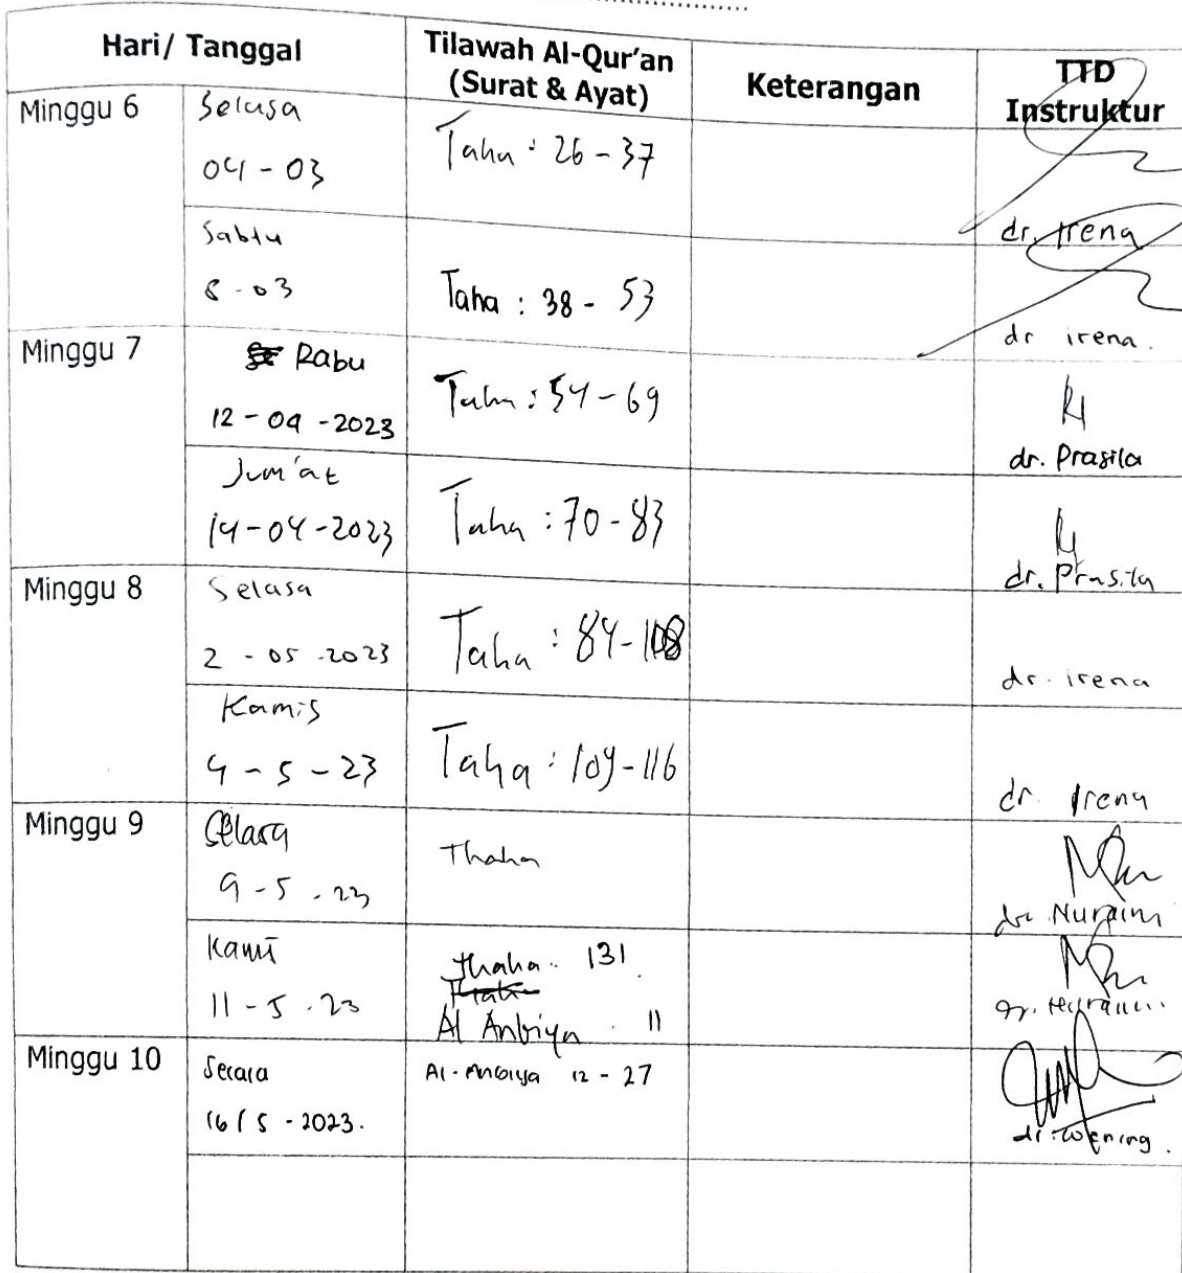 Hari/ Tanggal
Tilawah Al-Qur'an
(Surat & Ayat)
Keterangan
TTD
Instruktur
Minggu 6
Selasa
04 - 03
Taha : 26 - 37
dr. Irena
Sabtu
8 - 03
Taha : 38 - 53
dr irena.
Minggu 7
Rabu
12 - 04 - 2023
Taha : 54 - 69
dr. Prasila
Jum'at
14 - 04 - 2023
Taha : 70 - 83
dr. Prasila
Minggu 8
Selasa
2 - 05 - 2023
Taha : 84 - 108
dr. irena
Kamis
4 - 5 - 23
Taha : 109 - 116
dr. Irena
Minggu 9
Selasa
9 - 5 - 23
Thaha
dr. Nuraini
Kamis
11 - 5 - 23
Thaha 131
Al Anbiya 11
Minggu 10
Selasa
16 / 5 - 2023.
Al-Anbiya 12 - 27
dr. Wening.